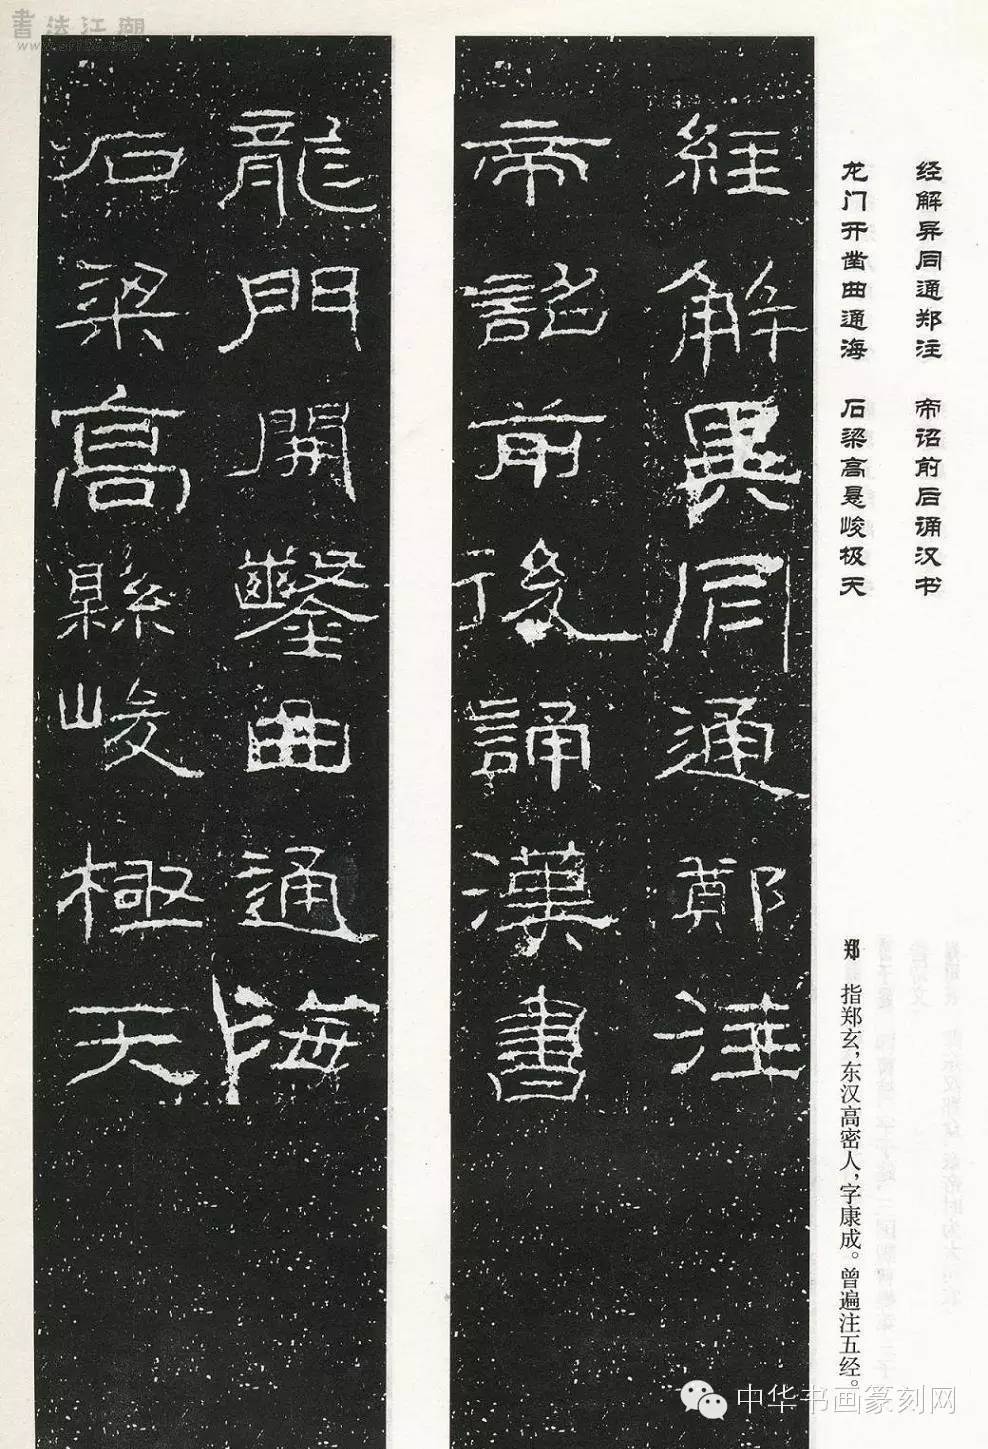 書法江湖
經解異同通鄭注
帝詔前後誦漢書
龍門開鑿曲通海
石梁高縣峻極天
经解异同通郑注　帝诏前后诵汉书
龙门开凿曲通海　石梁高悬峻极天
郑　指郑玄，东汉高密人，字康成。曾遍注五经。
中华书画篆刻网